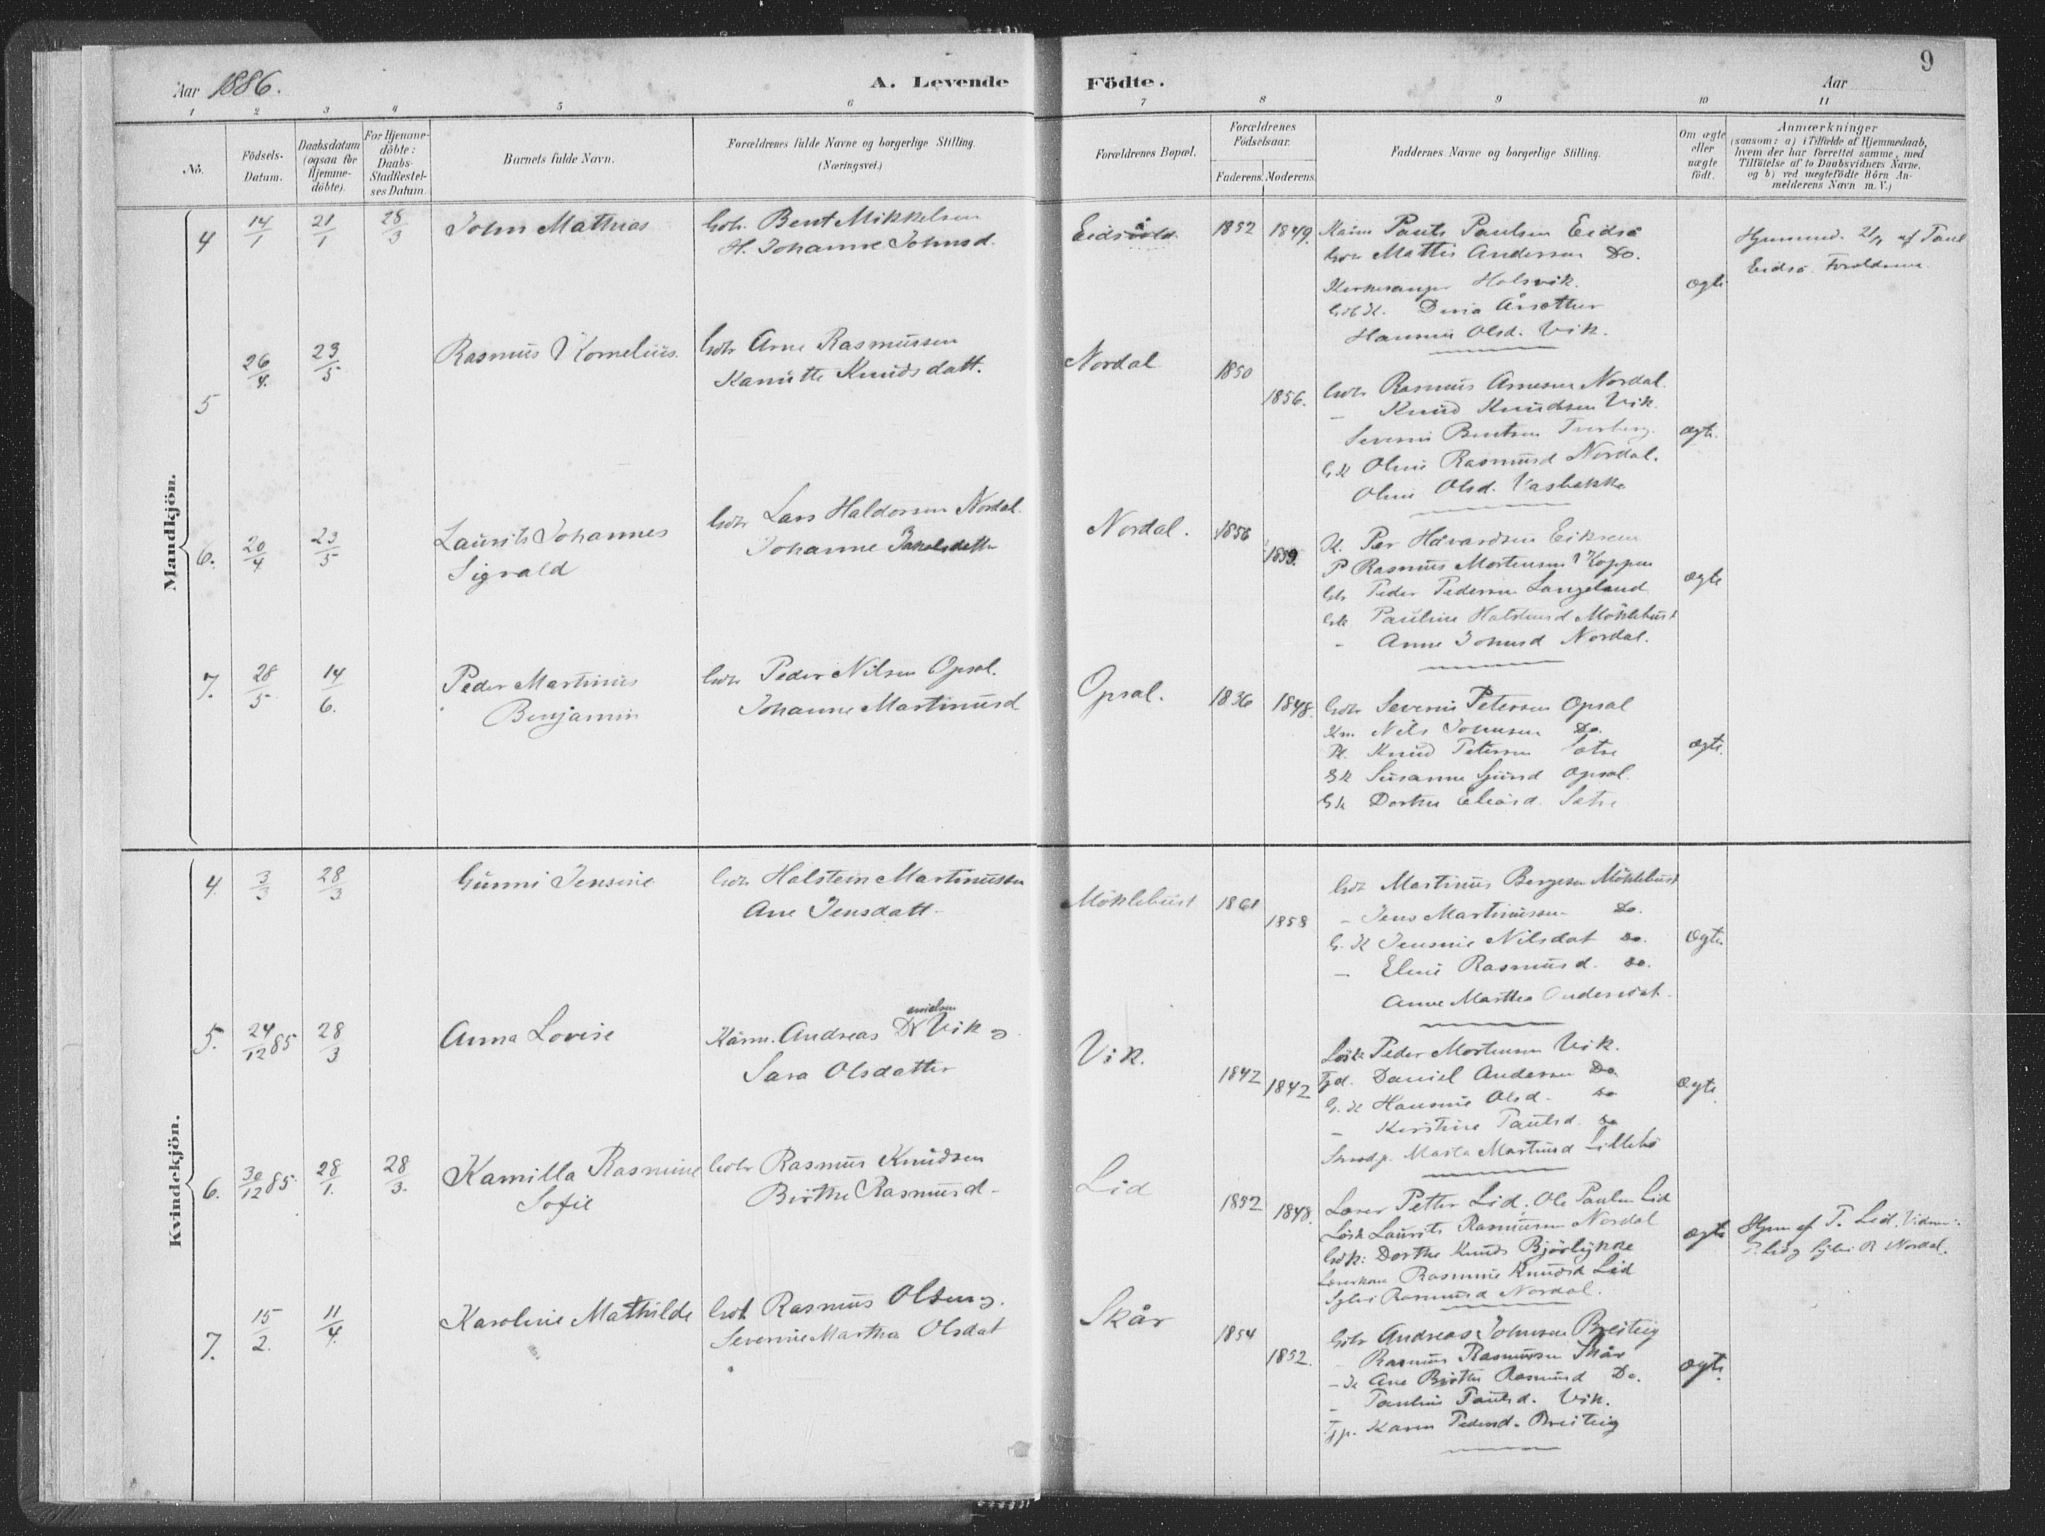 9
Aar 1886.
A. Levende Födte.
Aar
1 2 3 4 5 6 7 8 9 10 11
No.
Födsels-Datum.
Daabsdatum (ogsaa for Hjemme-döbte).
For Hjemme-döbte: Daabs-Stadfæstel-ses Datum.
Barnets fulde Navn.
Forældrenes fulde Navne og borgerlige Stilling. (Næringsvei.)
Forældrenes Bopæl.
Forældrenes Födselsaar.
Faderens. Moderens.
Faddernes Navne og borgerlige Stilling.
Om ægte eller uægte födt.
Anmærkninger
(saasom: a) i Tilfælde af Hjemmedaab, hvem der har forrettet samme, med Tilföielse af to Daabsvidners Navne, og b) ved uægtefödte Börn An-melderens Navn m. V.)
Mandkjön.
4 14/1 21/1 28/3 John Mathias
Gbr. Bent Mikkelsen
H. Johanne Johnsd.
Eidså 1852 1849.
Paul Paulsen Eidså
Gbr Mattis Andersen Do.
Kirkesanger Holsvik.
Dina Årsæther
Hansine Olsd. Vik.
ægte
Hjemmed. 21/1 af Paul
Eidså. Forældrene
5 26/4. 23/5 Rasmus Kornelius.
Gbr Arne Rasmussen
Kanutte Knudsdatt.
Nordal 1850 1856.
Gbr Rasmus Arnesen Nordal.
- Knud Knudsen Vik.
Severin Bentsen Tverberg.
GK Oline Rasmusd Nordal.
Oline Olsd. Vasbakke
ægte.
6. 20/4 23/5 Laurits Johannes
Sigvald
Gbr Lars Haldorsen Nordal.
Johanne Jakobsdatter
Nordal. 1856 1859.
K. Per Håvardsen Eiksem
P Rasmus Mortensen Koppen
Gbr Peder Pedersen Langeland
Gk Pauline Halsteinsd Möklebust
- Anne Johnsd Nordal.
ægte
7. 28/5. 14/6. Peder Martinus
Benjamin
Gbr Peder Nilsen Opsal.
Johanne Martinusd
Opsal. 1836 1848.
Gbr Severin Petersen Opsal
Km. Nils Johnsen Do.
Pl. Knud Petersen Sætre
GK Susanne Sjursd Opsal.
GK Dorthe Eliasd. Sætre
ægte.
Kvindekjön.
4. 3/3 28/3 Gunni Jensine
Gbr Halstein Martinussen
Ane Jensdatt.
Möklebust 1861 1858
Gbr Martinus Bergesen Möklebust
- Jens Martinussen Do.
G.K Jensine Nilsdat Do.
- Eline Rasmusd. Do.
Anne Martha Andersdat.
Ægte.
5. 24/12 85 28/3 Anna Lovise
Kårm. Andreas Danielsen Vik og
Sara Olsdatter
Vik. 1842 1842
Lösk Peder Mortensen Vik.
Daniel Andersen Do
G.K Hansine Olsd. Do
- Kirstine Paulsd. Do
Marta Martinsd Lillebö
Ægte.
6. 30/12 85. 28/1. 28/3. Kamilla Rasmine
Sofie
Gbr Rasmus Knudsen
Birthe Rasmusd.
Lid 1852 1848.
Lærer Petter Lid. Ole Paulsen Lid
Lösk Laurits Rasmussen Nordal
Gbk: Dorthe Knuds Björlykke
Lærerkone Rasmine Knudsd Lid
Sylvi Rasmusd Nordal.
ægte
Hjem af P. Lid. Vidner:
P. Lid og Sylvi R Nordal.
7. 15/2. 11/4. Karoline Mathilde
Gbr Rasmus Olsen og.
Severine Martha Olsdat
Skår 1854 1852.
Gbr Andreas Johnsen Breiteig
- Rasmus Rasmussen Skår
- K Ane Birthe Rasmusd Do.
- Pauline Paulsd. Vik.
Karen Pedersd. Breiteig
ægte.